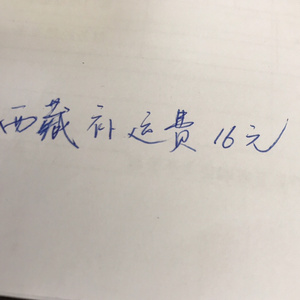 西藏补运费16元